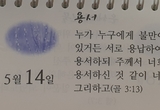 용서
누가 누구에게 불만이
있거든 서로 용납하여
용서하되 주께서 너희
용서하신 것 같이 너
그리하고(골 3:13)
5월 14일